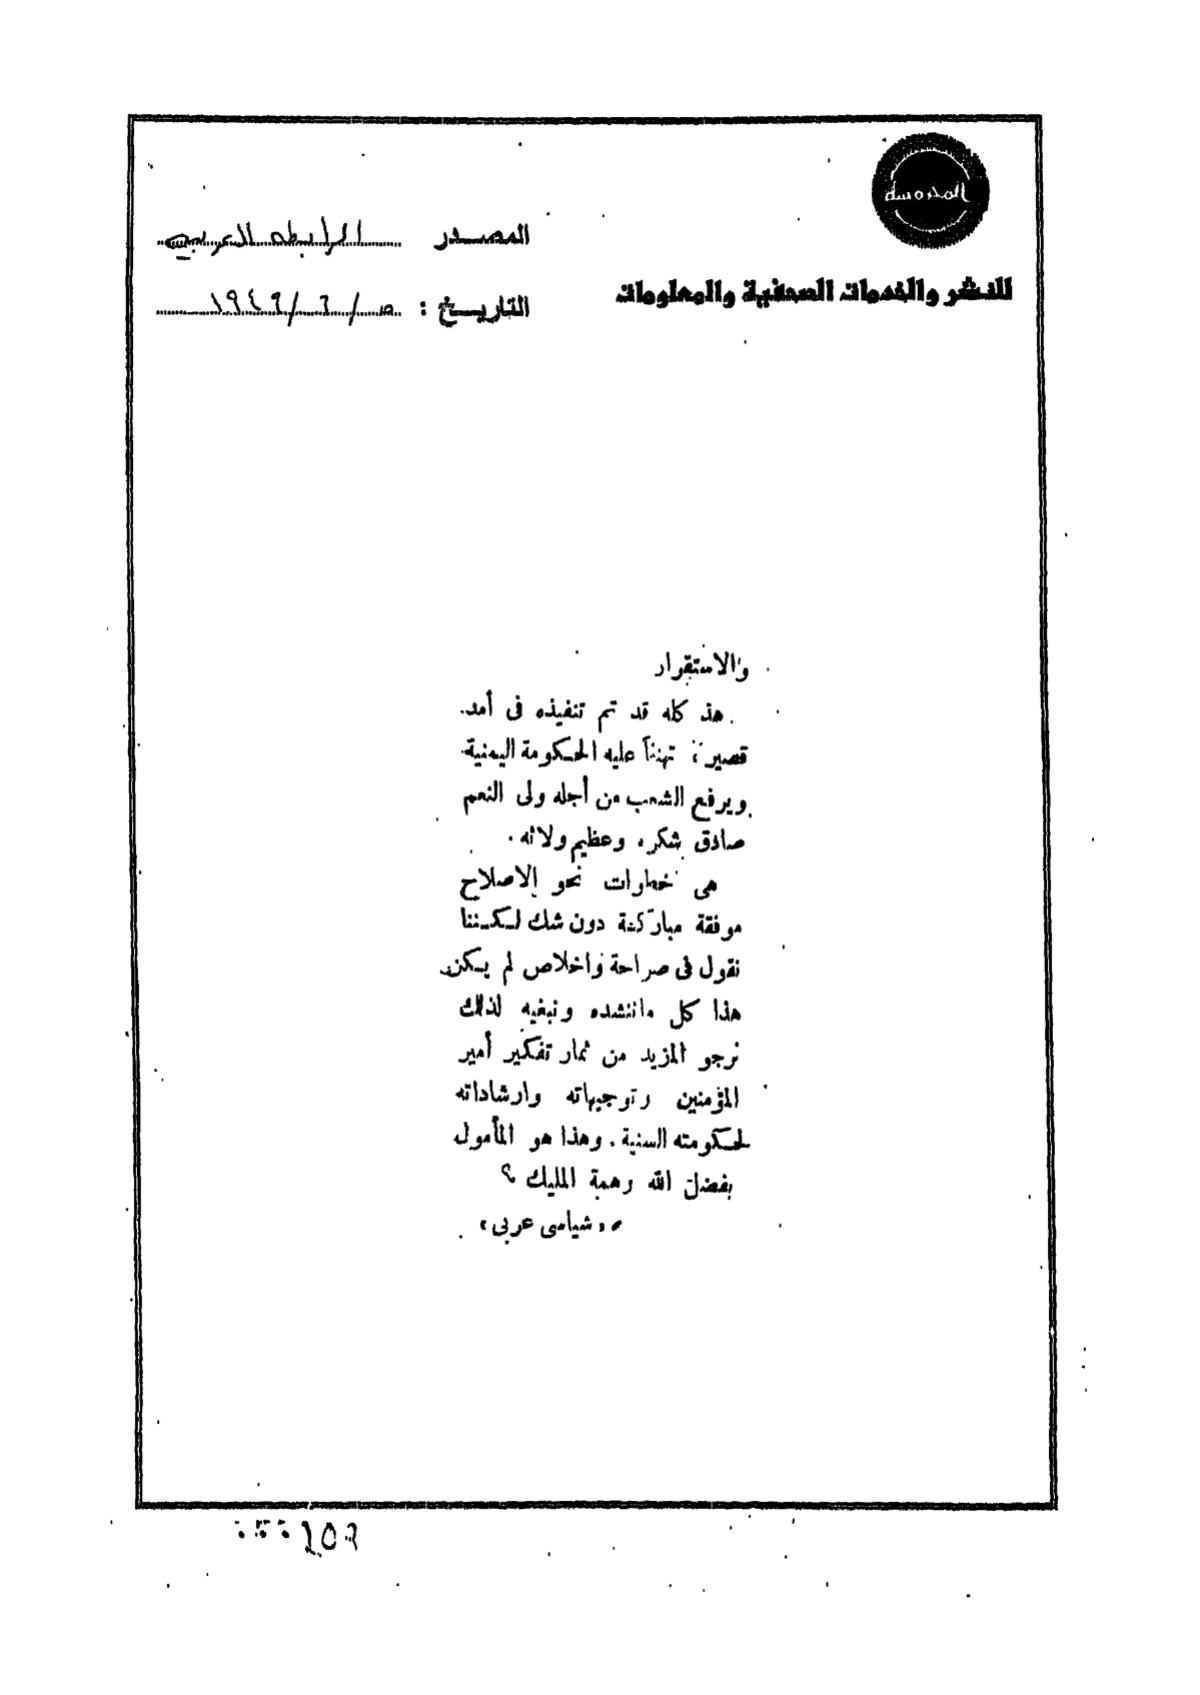 المحروسة
للنشر والخدمات الصحفية والمعلومات
المصدر الرابطه العربيه
التاريخ : ٥ / ٦ / ١٩٤٦
والاستقرار
هذ كله قد تم تنفيذه فى أمد
قصير ، تهنأ عليه الحكومة اليمنية
ويرفع الشعب من أجله ولى النعم
صادق شكره وعظيم ولائه .
هى خطوات نحو الاصلاح
موفقة مباركة دون شك لكننا
نقول فى صراحة واخلاص لم يكن
هذا كل ماننشده ونبغيه لذلك
نرجو المزيد من ثمار تفكير أمير
المؤمنين وتوجيهاته وارشاداته
لحكومته السنية . وهذا هو المأمول
بفضل الله وهمة المليك ؟
« سياسى عربى »